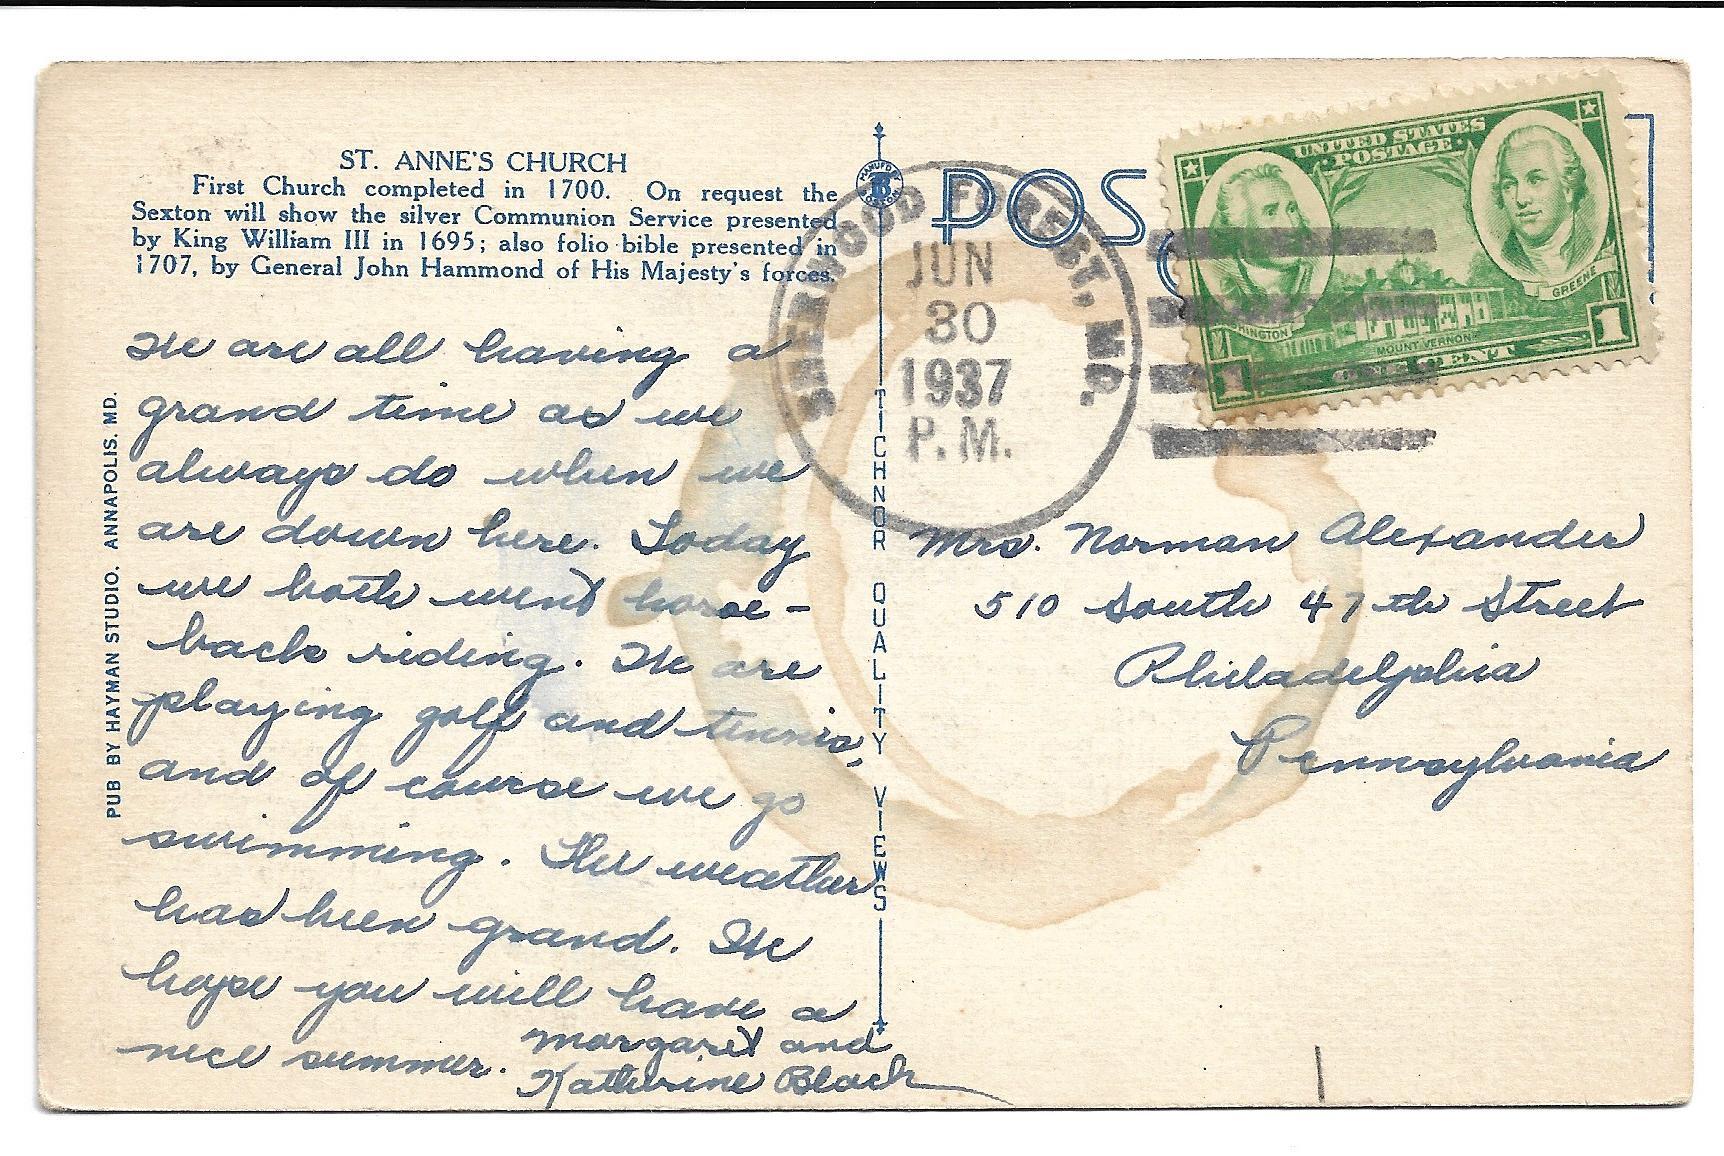 ST. ANNE'S CHURCH
First Church completed in 1700. On request the
Sexton will show the silver Communion Service presented
by King William III in 1695; also folio bible presented in
1707, by General John Hammond of His Majesty's forces.
We are all having a
grand time as we
always do when we
are down here. Today
we both went horse-
back riding. We are
playing golf and tennis,
and of course we go
swimming. The weather
has been grand. We
hope you will have a
nice summer.
Margaret and
Katherine Black
PUB BY HAYMAN STUDIO. ANNAPOLIS. MD.
TICHNOR QUALITY VIEWS
MANUF'D BY
BOSTON
POS
SHERWOOD FOREST, MD.
JUN
30
1937
P.M.
UNITED STATES
POSTAGE
GREENE
MOUNT VERNON
1
1
Mrs. Norman Alexander
510 South 47th Street
Philadelphia
Pennsylvania